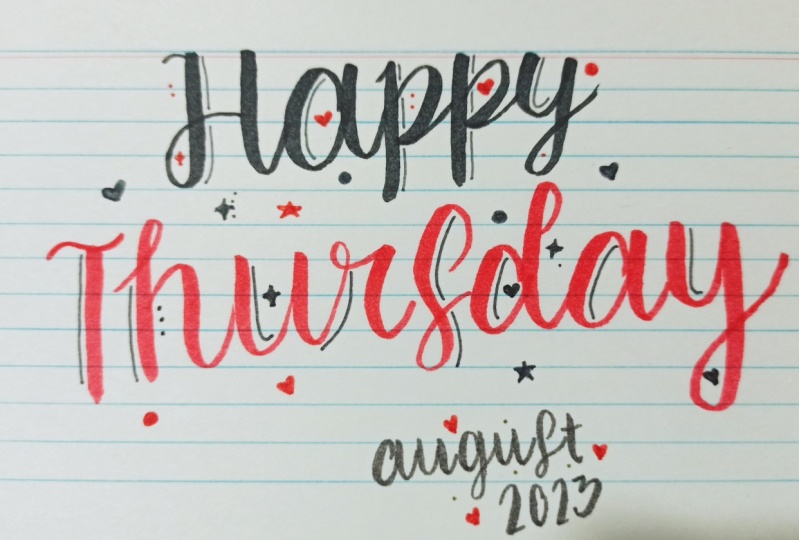 Happy
Thursday
august
2023